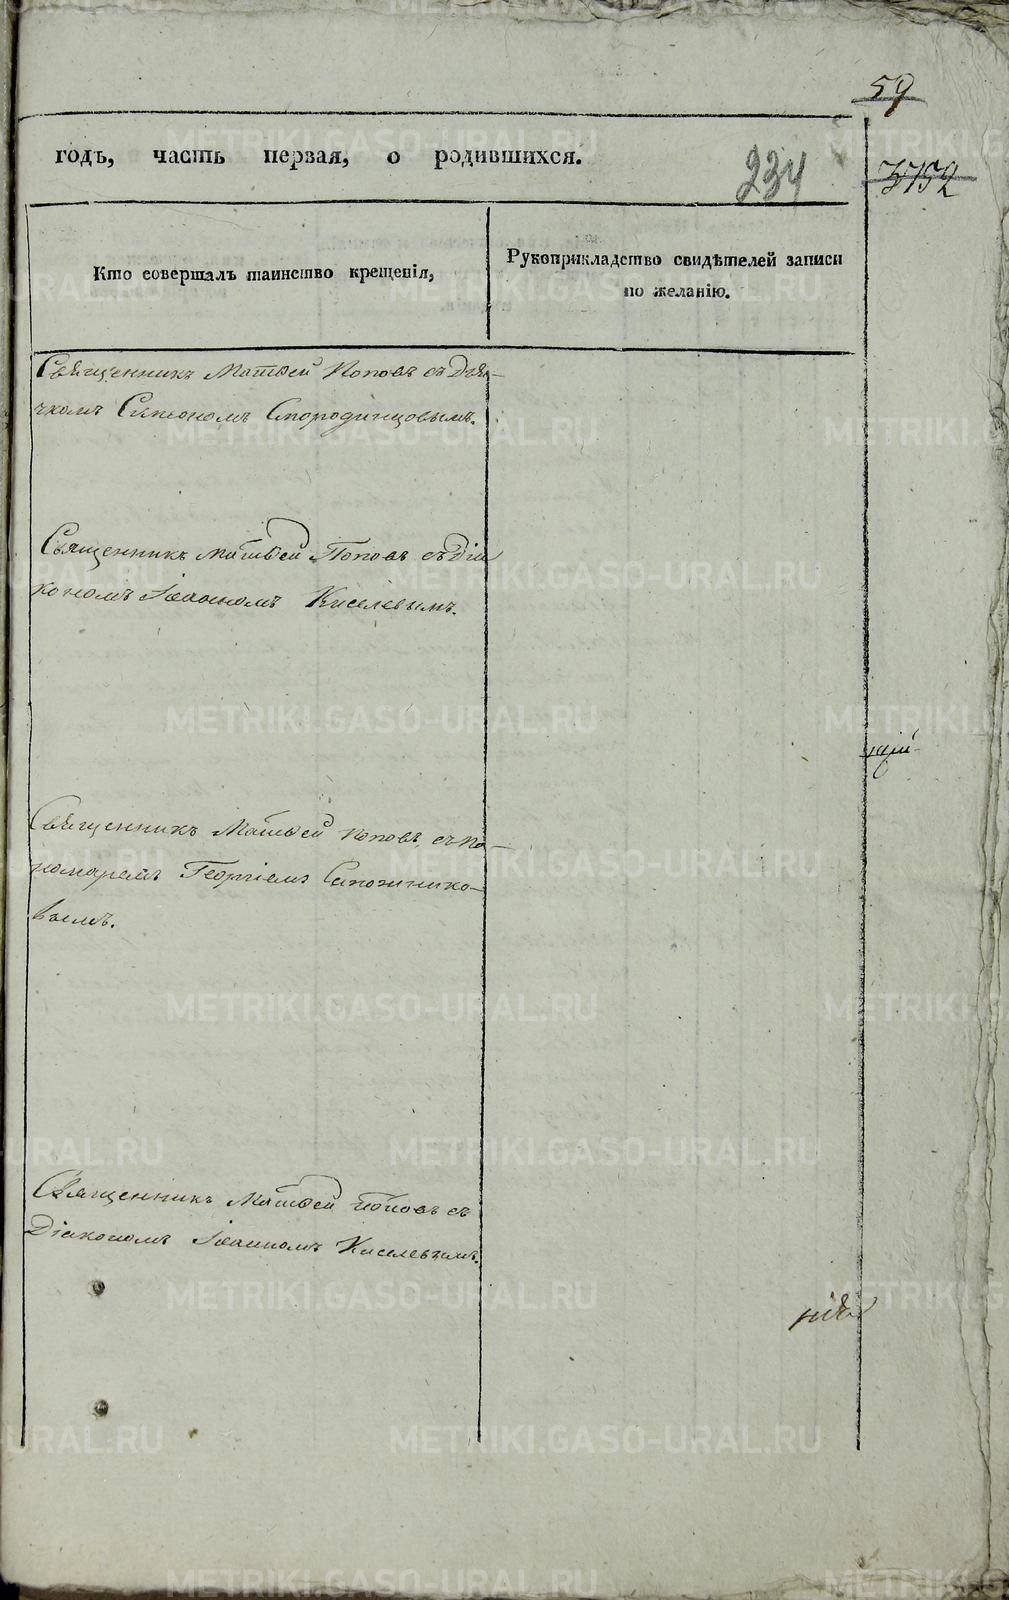 59
годъ, часть первая, о родившихся.
234
3152
Кто совершалъ таинство крещенія,
Рукоприкладство свидѣтелей записи
по желанію.
Священникъ Матѳей Поповъ съ Дья-
чкомъ Симеономъ Смородинцовымъ.
Священникъ Матѳей Поповъ съ Діа
кономъ Іоанномъ Киселевымъ.
Священникъ Матѳей Поповъ съ По-
номаремъ Георгіемъ Сапожнико-
вымъ.
Священникъ Матѳей Поповъ съ
Діакономъ Іоанномъ Киселевымъ.
METRIKI.GASO-URAL.RU